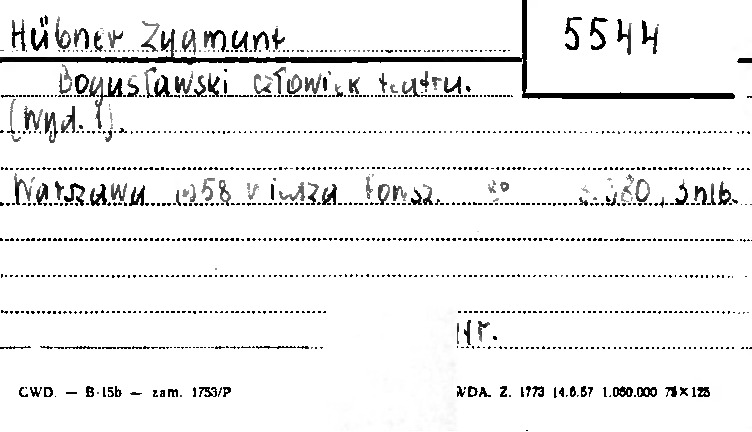 Hübner Zygmunt
5544
Bogusławski człowiek teatru.
(Wyd. 1).
Warszawa 1958 Wiedza Powsz. 8° s. 380, 3 nlb.
Nr.
CWD. — B-15b — zam. 1753/P
WDA. Z. 1773 14.6.57 1.060.000 75×125